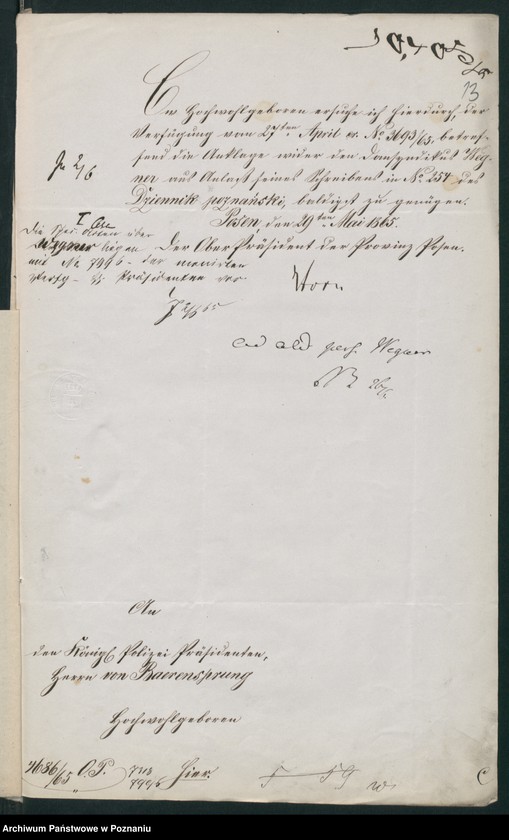 13
Ew Hochwohlgeboren ersuche ich hierdurch, der
Verfügung vom 27ten April cr. No 3693/65. betref-
fend die Anklage wider den Domsyndikus Weg-
ner aus Anlaß seines Schreibens in No. 254 des
Dziennik poznański, baldigst zu genügen.
Posen, den 29ten Mai 1865.
Der Ober Präsident der Provinz Posen.
Horn
2/6
Die Spec. Akten über
Wegner liegen
mit No 7996 der
Präsidenten vor.
2/6 65
ad acta pers. Wegner
26/6
An
den Königl. Polizei Präsidenten,
Herrn von Baerensprung
Hochwohlgeboren
4686/65 O.P.
Hier
Archiwum Państwowe w Poznaniu